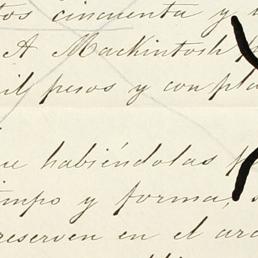 tos cincuenta y
A Mackintosh
mil pesos y con pla
que habiéndolas
tiempo y forma,
reserven en el arc